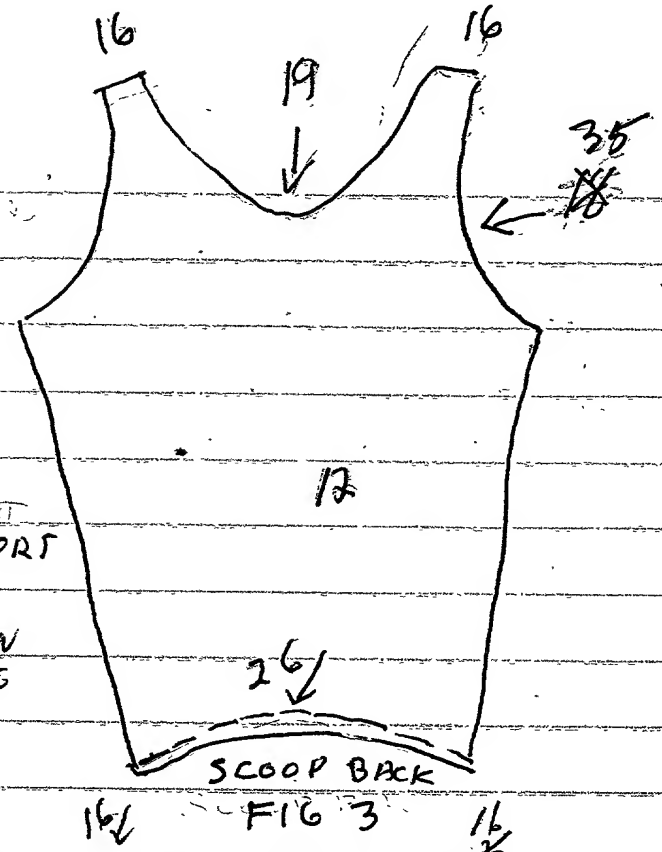 16 16
19
35
18
12
ORT
26
SCOOP BACK
16 FIG 3 16